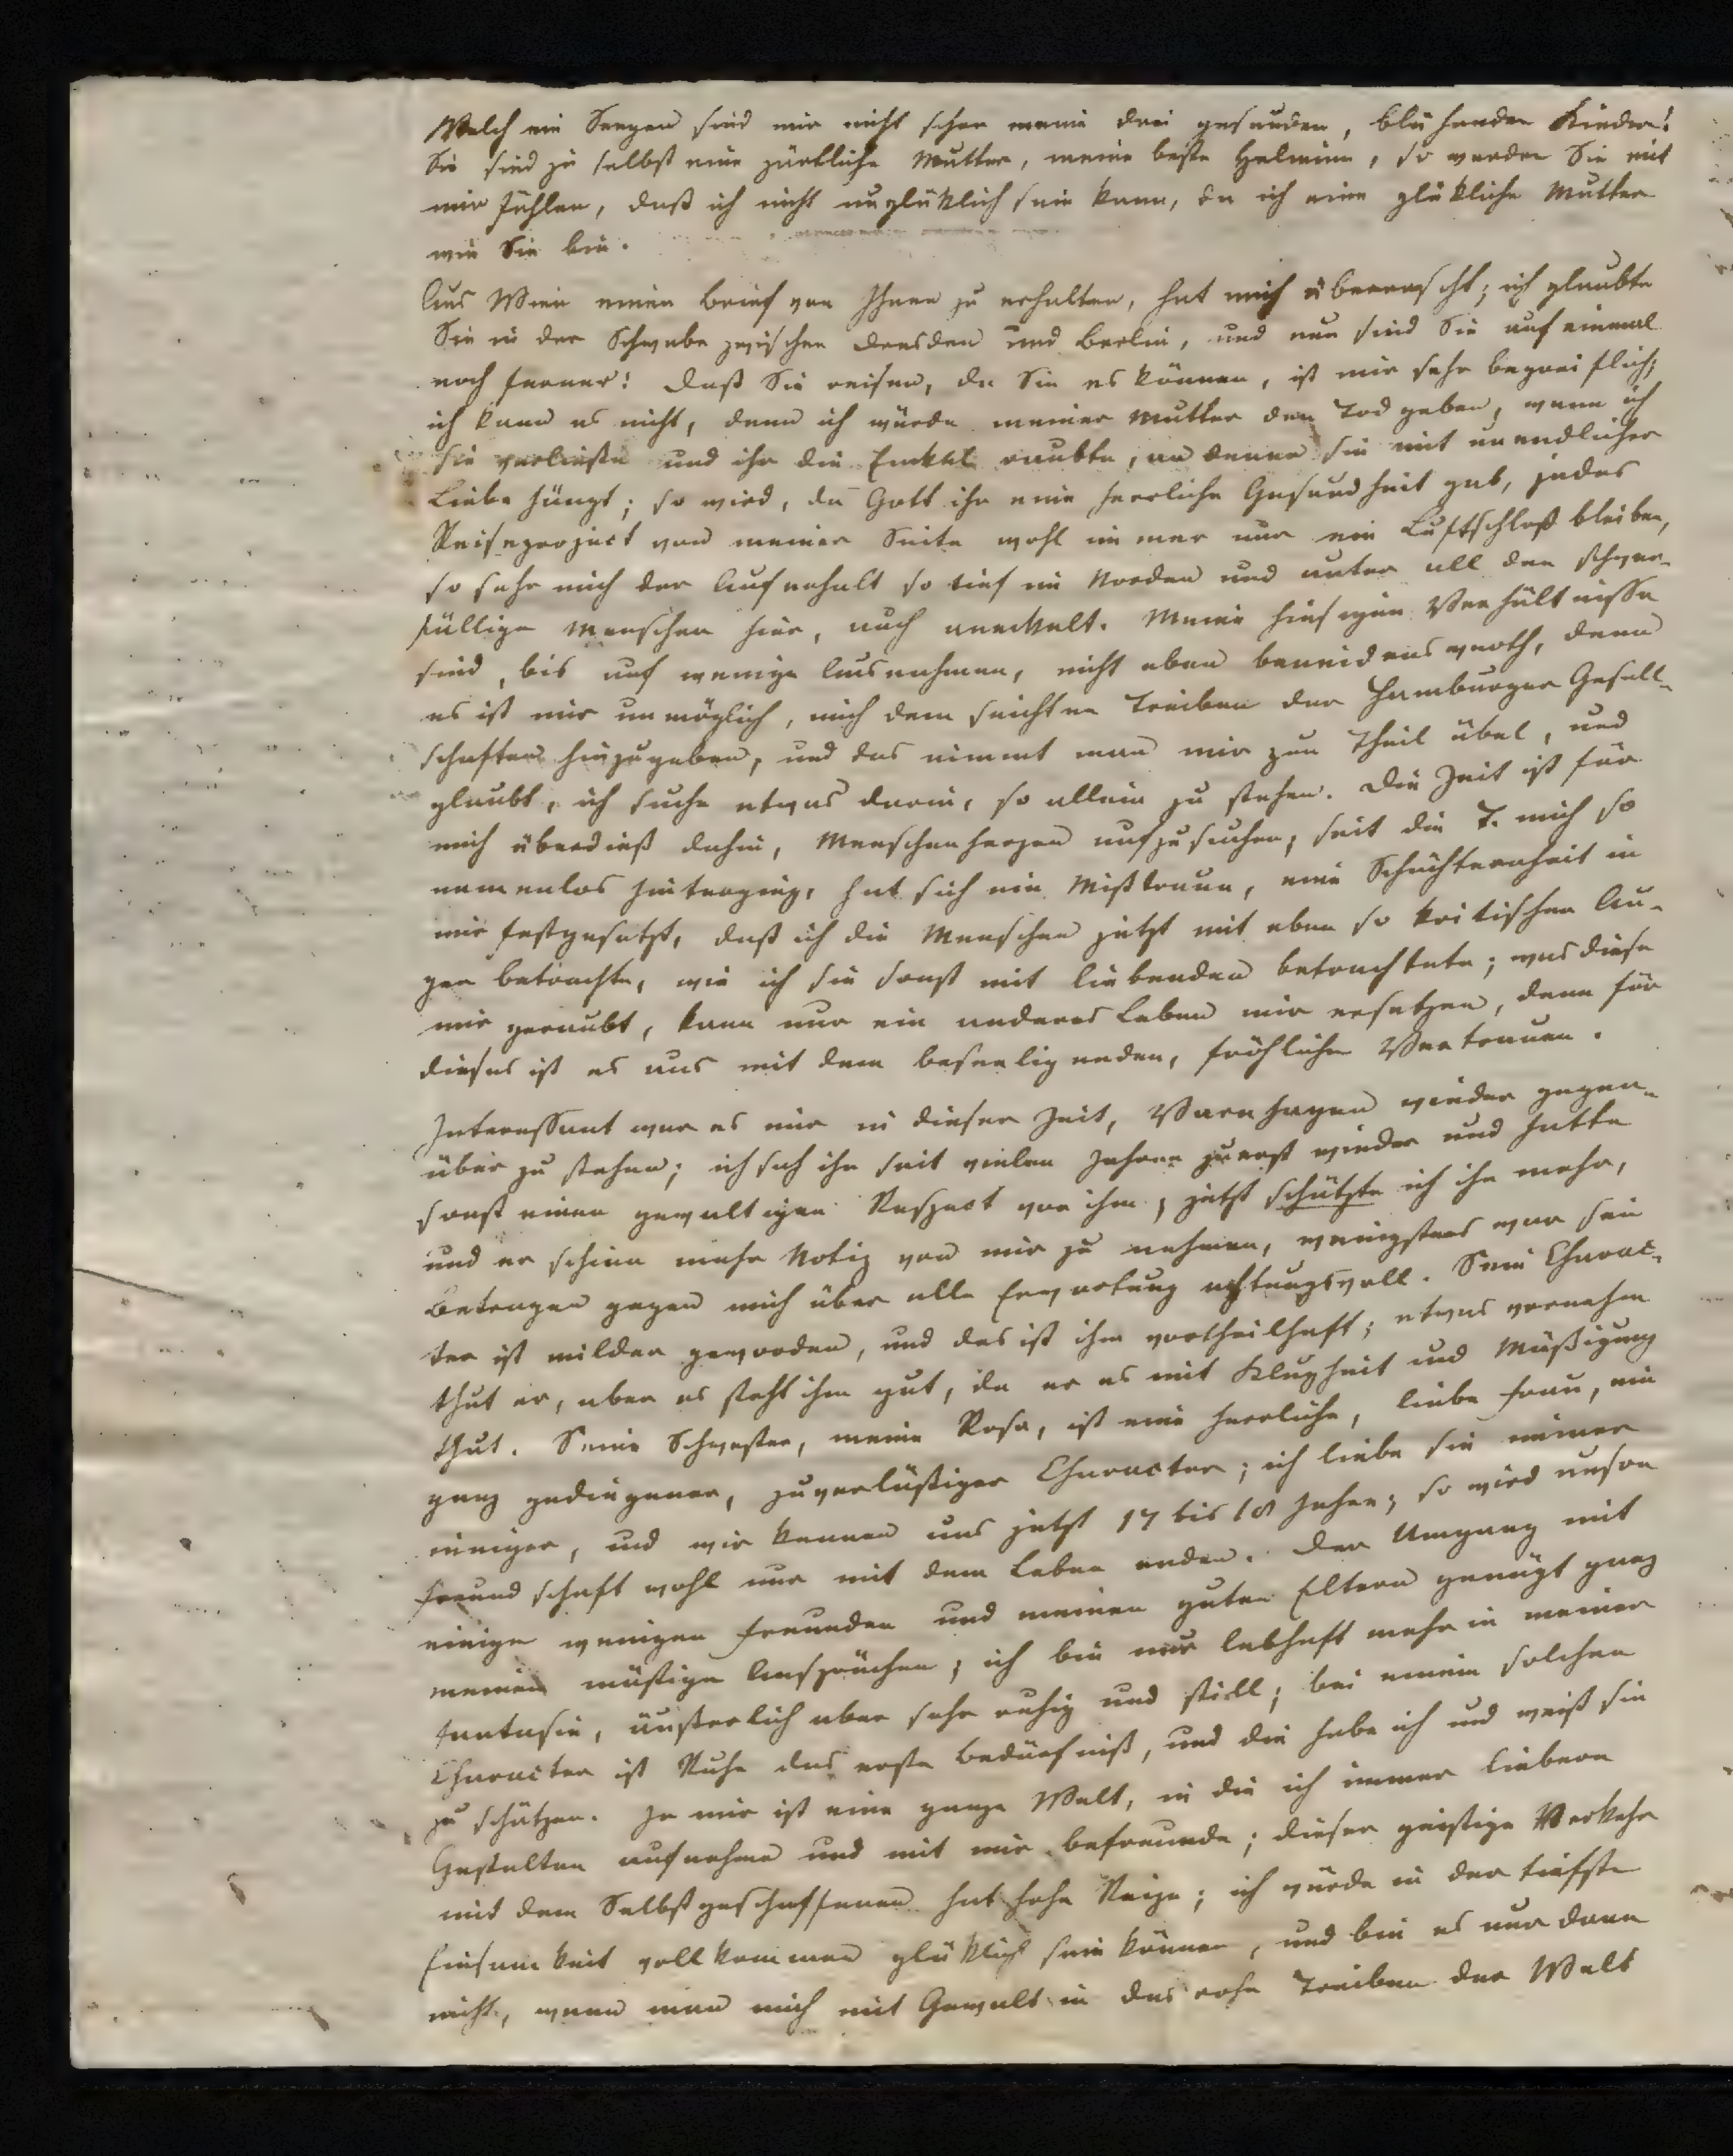 Welch ein Seegen sind mir nicht schon meine drei gesunden, blühenden Kinder!
Sie sind ja selbst eine zärtliche Mutter, meine beste Helmine, so werden Sie mit
mir fühlen, daß ich nicht unglüklich sein kann, da ich eine glükliche Mutter
wie Sie bin.
Aus Wien einen Brief von Ihnen zu erhalten, hat mich überrascht; ich glaubte
Sie in der Schwebe zwischen Dresden und Berlin, und nun sind Sie auf einmal
noch ferner! Daß Sie reisen, da Sie es können, ist mir sehr begreiflich;
ich kann es nicht, denn ich würde meiner Mutter den Tod geben, wenn ich
sie verließe und ihr die Enkel raubte, an denen sie mit unendlicher
Liebe hängt; so wird, da Gott ihr eine herrliche Gesundheit gab, jedes
Reiseproject von meiner Seite wohl immer nur ein Luftschloß bleiben,
so sehr mich der Aufenhalt so tief im Norden und unter all den schwer-
fällige Menschen hier, auch aneckelt. Meine hiesigen Verhältnisse
sind, bis auf wenige Ausnahmen, nicht eben beneidenswerth, denn
es ist mir unmöglich, mich dem seichten Treiben der Hamburger Gesell-
schaften hinzugeben, und das nimmt man mir zum Theil übel, und
glaubt, ich suche etwas darin, so allein zu stehen. Die Zeit ist für
mich überdieß dahin, Menschenherzen aufzusuchen; seit die T. mich so
namenlos hinterging, hat sich ein Mißtrauen, eine Schüchternheit in
mir festgesetzt, daß ich die Menschen jetzt mit eben so kritischen Au-
gen betrachte, wie ich sie sonst mit liebenden betrachtete; was diese
mir geraubt, kann nur ein anderes Leben mir ersetzen, denn für
dieses ist es aus mit dem beseeligenden, fröhlichen Vertrauen.
Interessant war es mir in dieser Zeit, Varnhagen wieder gegen-
über zu stehen; ich sah ihn seit vielen Jahren zuerst wieder und hatte
sonst einen gewaltigen Respect vor ihm; jetzt schätzte ich ihn mehr,
und er schien mehr Notiz von mir zu nehmen, wenigstens war sein
Betragen gegen mich über alle Erwartung achtungsvoll. Sein Charac-
ter ist milder geworden, und das ist ihm vortheilhaft; etwas vornehm
thut er, aber es steht ihm gut, da er es mit Klugheit und Mäßigung
thut. Seine Schwester, meine Rosa, ist eine herrliche, liebe Frau, ein
ganz gediegener, zuverläßiger Character; ich liebe sie immer
inniger, und wir kennen uns jetzt 17 bis 18 Jahre; so wird unsre
Freundschaft wohl nur mit dem Leben enden. Der Umgang mit
einigen wenigen Freunden und meinen guten Eltern genügt ganz
meinen mäßigen Ansprüchen; ich bin nur lebhaft mehr in meiner
Fantasie, äußerlich aber sehr ruhig und still; bei einem solchen
Character ist Ruhe das erste Bedürfniß, und die habe ich und weiß sie
zu schätzen. In mir ist eine ganze Welt, in die ich immer liebere
Gestalten aufnehme und mit mir befreunde; dieser geistige Verkehr
mit dem Selbstgeschaffenen hat hohe Reize; ich würde in der tiefsten
Einsamkeit vollkommen glüklich sein können, und bin es nur dann
nicht, wenn man mich mit Gewalt in das rohe Treiben der Welt